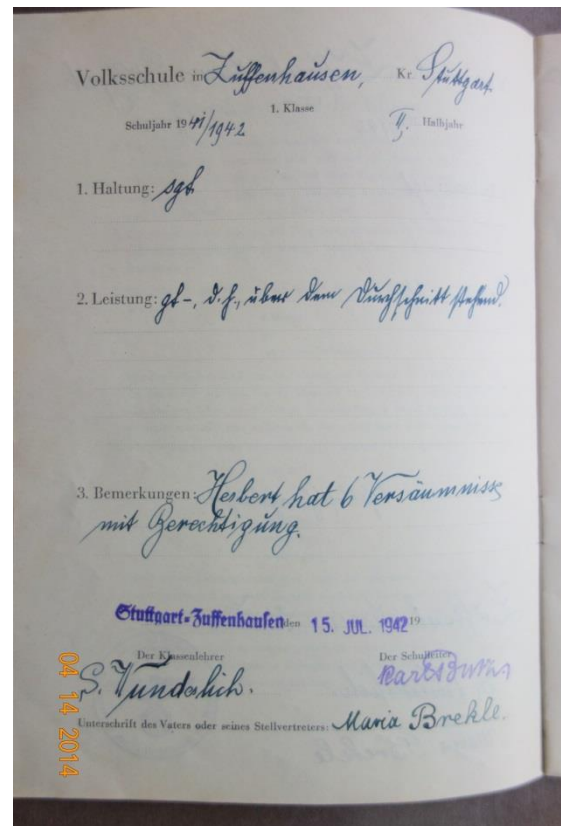 Volksschule in Zuffenhausen, Kr. Stuttgart.
1. Klasse
Schuljahr 1941/1942 II. Halbjahr
1. Haltung: sgt.
2. Leistung: gt-, d. h., über dem Durchschnitt stehend.
3. Bemerkungen: Herbert hat 6 Versäumnisse
mit Berechtigung.
Stuttgart-Zuffenhausen den 15. JUL. 1942 19
Der Klassenlehrer Der Schulleiter
S. Wunderlich. Karl
Unterschrift des Vaters oder seines Stellvertreters: Maria Brekle.
04 14 2014